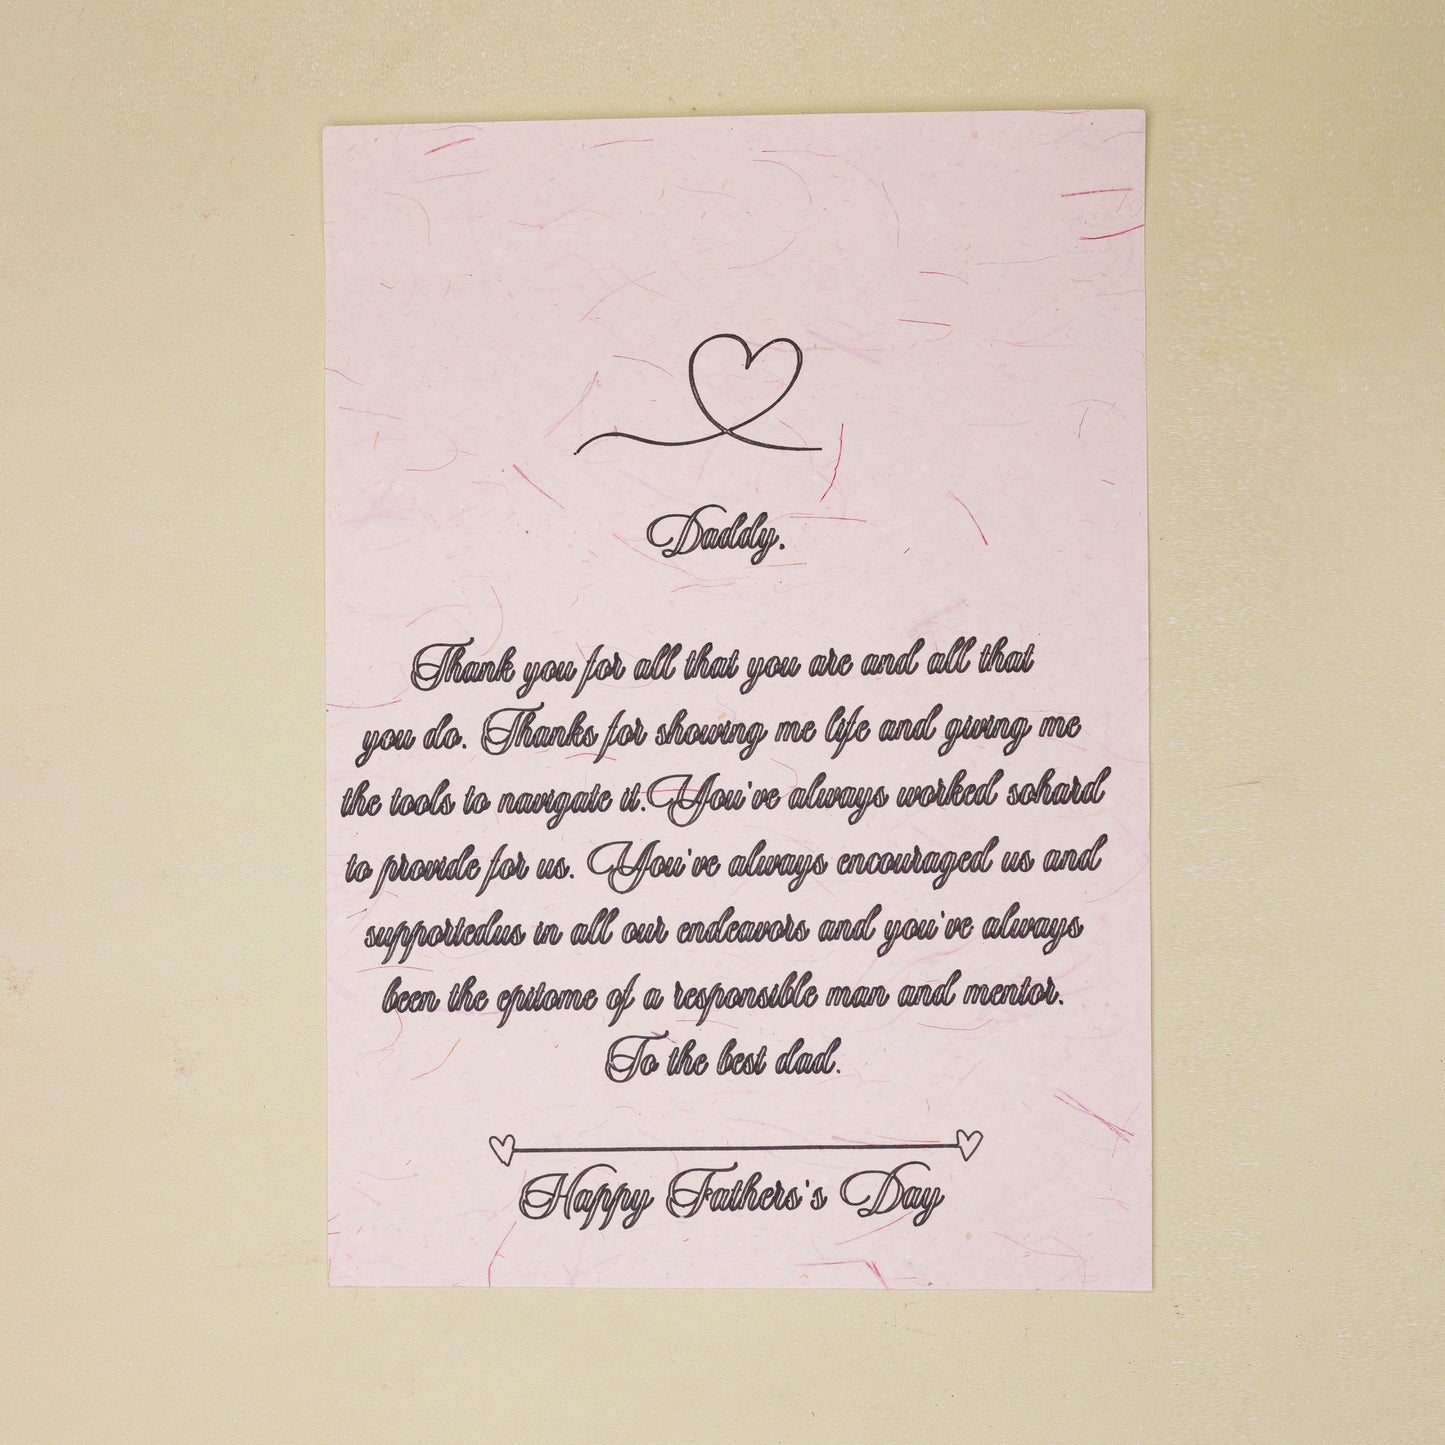 Daddy.
Thank you for all that you are and all that
you do. Thanks for showing me life and giving me
the tools to navigate it.You've always worked sohard
to provide for us. You've always encouraged us and
supportedus in all our endeavors and you've always
been the epitome of a responsible man and mentor.
To the best dad.
Happy Fathers's Day